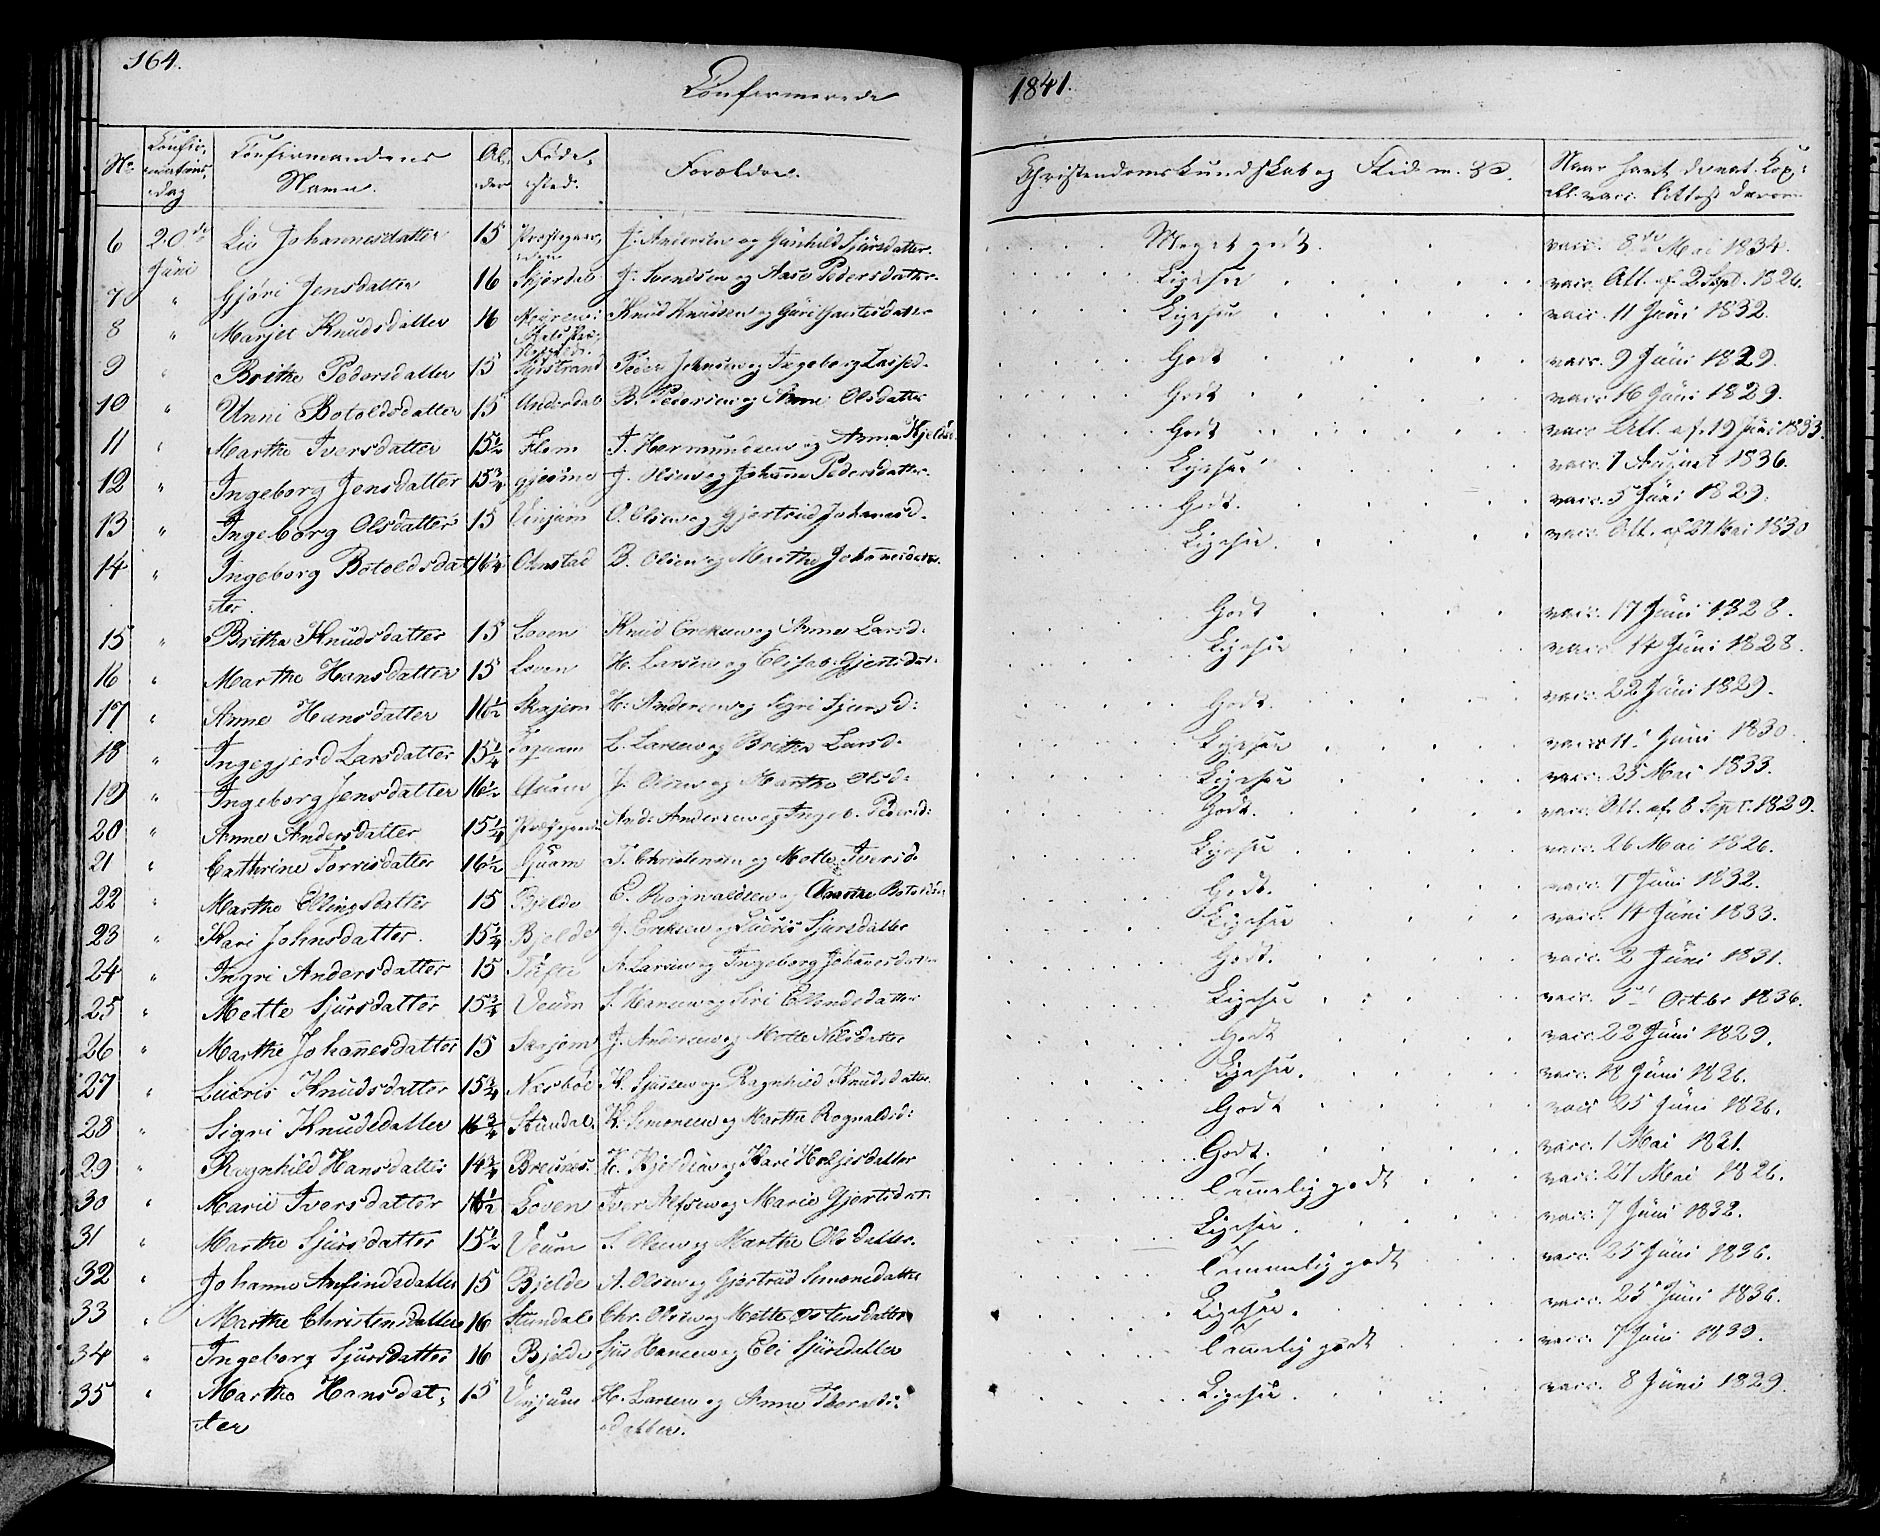 164.
Confirmerede
1841.
No Confir- Confirmandens Al- Føde- Forældre. Christendomskundskab og Flid m. Naar havt de nat. Kop-
mations- Navn. der sted. ell. vacc. Attest derom
dag
6 20de Lie Johannesdatter 15 J. Andersen og Gunhild Sjursdatter. Meget godt. vacc. 8de Mai 1834.
Juni
7 " Gjøri Jensdatter 16 Skjerdal J. og Aase Pedersdatter. Ligesaa vacc. Att. af 2 Sept. 1826.
8 " Marjet Knudsdatter 16 Knud Knudsen og Guri Ligesaa vacc. 11 Juni 1832.
9 " Brithe Pedersdatter 15 Peder Johnsen og Ingeborg Lassed. Godt vacc. 9 Juni 1829.
10 " Unni Botoldsdatter 15 Underdal B. Pedersen og Anne Olsdatter Godt vacc. 16 Juni 1829.
11 " Marthe Iversdatter 15½ Flom I. Hermundsen og Anna Godt vacc. Att. af 19 Juni 1833.
12 " Ingeborg Jensdatter 15¾ J. Olsen og Johanne Pedersdatter. Ligesaa vacc. 7 August 1836.
13 " Ingeborg Olsdatter 15 Vinjum O. Olsen og Gjertrud Johannesd. Godt. vacc. 5 Juni 1829.
14 " Ingeborg Botoldsdat- 16¼ Otenstad B. Olsen og Marthe Johannesdatter. Ligesaa. vacc. Att. af 27 Mai 1830
ter.
15 " Britha Knudsdatter 15 Loven Knud Eriksen og Anna Larsd. Godt vacc. 17 Juni 1828.
16 " Marthe Hansdatter 15 Loven H. Larsen og Elisab. Gjertsdat. Ligesaa vacc. 14 Juni 1828.
17 " Anne Hansdatter 16½ Skajem H. Andersen og Sigri Sjursd: Godt. vacc. 22 Juni 1829.
18 " Ingegjerd Larsdatter 15¼ L. Larsen og Britha Larsd. Ligesaa vacc. 11 Juni 1830.
19 " Ingeborg Jensdatter 16½ Quam J. Olsen og Martha Olsd: Ligesaa vacc. 25 Mai 1833.
20 " Anne Andersdatter 15¼ And: Andersen og Ingeb. Pedersd: Godt. vacc. Att. af 8 Sept. 1829.
21 " Cathrine Torrisdatter 16½ Quam T. Christensen og Mette Iversd. Ligesaa vacc. 26 Mai 1826.
22 " Marthe Ellingsdatter 15 Bjelde E. Rognvaldsen og Marthe Godt. vacc. 7 Juni 1832.
23 " Kari Johnsdatter. 15¼ Bjelde J. Eriksen og Lucris Sjursdatter Ligesaa vacc. 14 Juni 1833.
24 " Ingri Andersdatter 15 A. Larsen og Ingeborg Godt. vacc. 2 Juni 1831.
25 " Mette Sjursdatter 15¾ Veum S. Hansen og Siri Ellendsdatter Ligesaa vacc. Octbr 1836.
26 " Marthe Johannesdatter 15 Skajem J. Andersen og Mette Nilsdatter Godt vacc. 22 Juni 1829.
27 " Lucris Knudsdatter 15¾ Næsbøe K. Sjursen og Ragnhild Knudsdatter Ligesaa. vacc. 18 Juni 1826.
28 " Sigri Knudsdatter 16¾ Stundal. K. Simonsen og Martha Rognaldsd: Godt vacc. 25 Juni 1826.
29 " Ragnhild Hansdatter 14¾ H. Kjeldsen og Kari Holjesdatter Godt. vacc. 1 Mai 1821.
30 " Marie Iversdatter 16½ Loven Iver Alfsen og Marie Gjertsdat: Temmelig godt vacc. 27 Mai 1826.
31 " Marthe Sjursdatter 15½ Veum S. Olsen og Marthe Olsdatter. Ligesaa. vacc. 7 Juni 1832.
32 " Johanne Anfindsdatter 15 Bjelde A. Olsen og Gjertrud Simonsdatter Temmelig godt vacc. 25 Juni 1836.
33 " Marthe Christensdatter 16 Stundal Chr. Olsen og Mette Ostensdatter Ligesaa. vacc. 25 Juni 1836.
34 " Ingeborg Sjursdatter 16 Bjelde Sjur Hansen og Eli Sjursdatter Temmelig godt vacc. 7 Juni 1839.
35 " Martha Hansdat- 15 Vinjum H. Larsen og Anne Ligesaa. vacc. 8 Juni 1829.
ter datter.